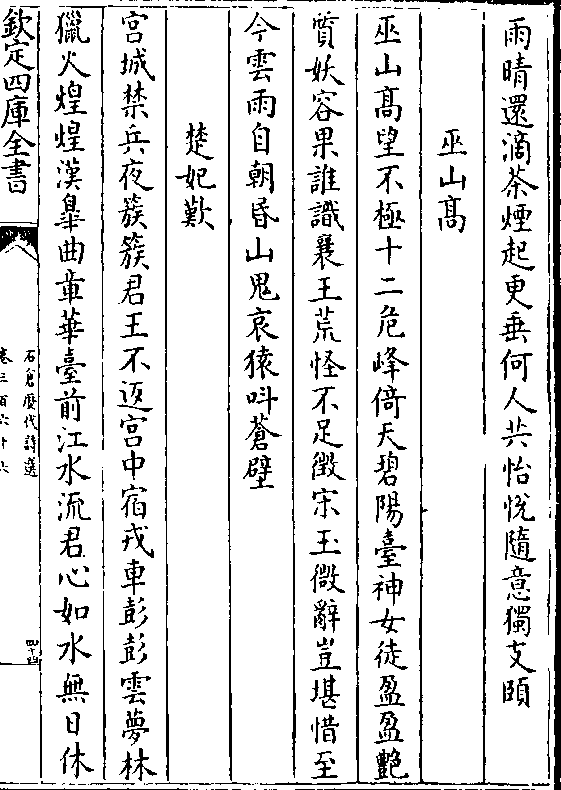 雨晴還滴茶煙起更垂何人共怡悅隨意獨支頤
巫山髙
巫山髙望不極十二危峰倚天碧陽臺神女徒盈盈艷
質妖容果誰識襄王荒怪不足徴宋玉微辭豈堪惜至
今雲雨自朝昏山鬼哀猿呌蒼壁
楚妃歎
宮城禁兵夜簇簇君王不返宮中宿戎車彭彭雲夢林
獵火煌煌漢臯曲章華臺前江水流君心如水無日休
欽定四庫全書
石倉歷代詩選
卷三百六十六
四十四